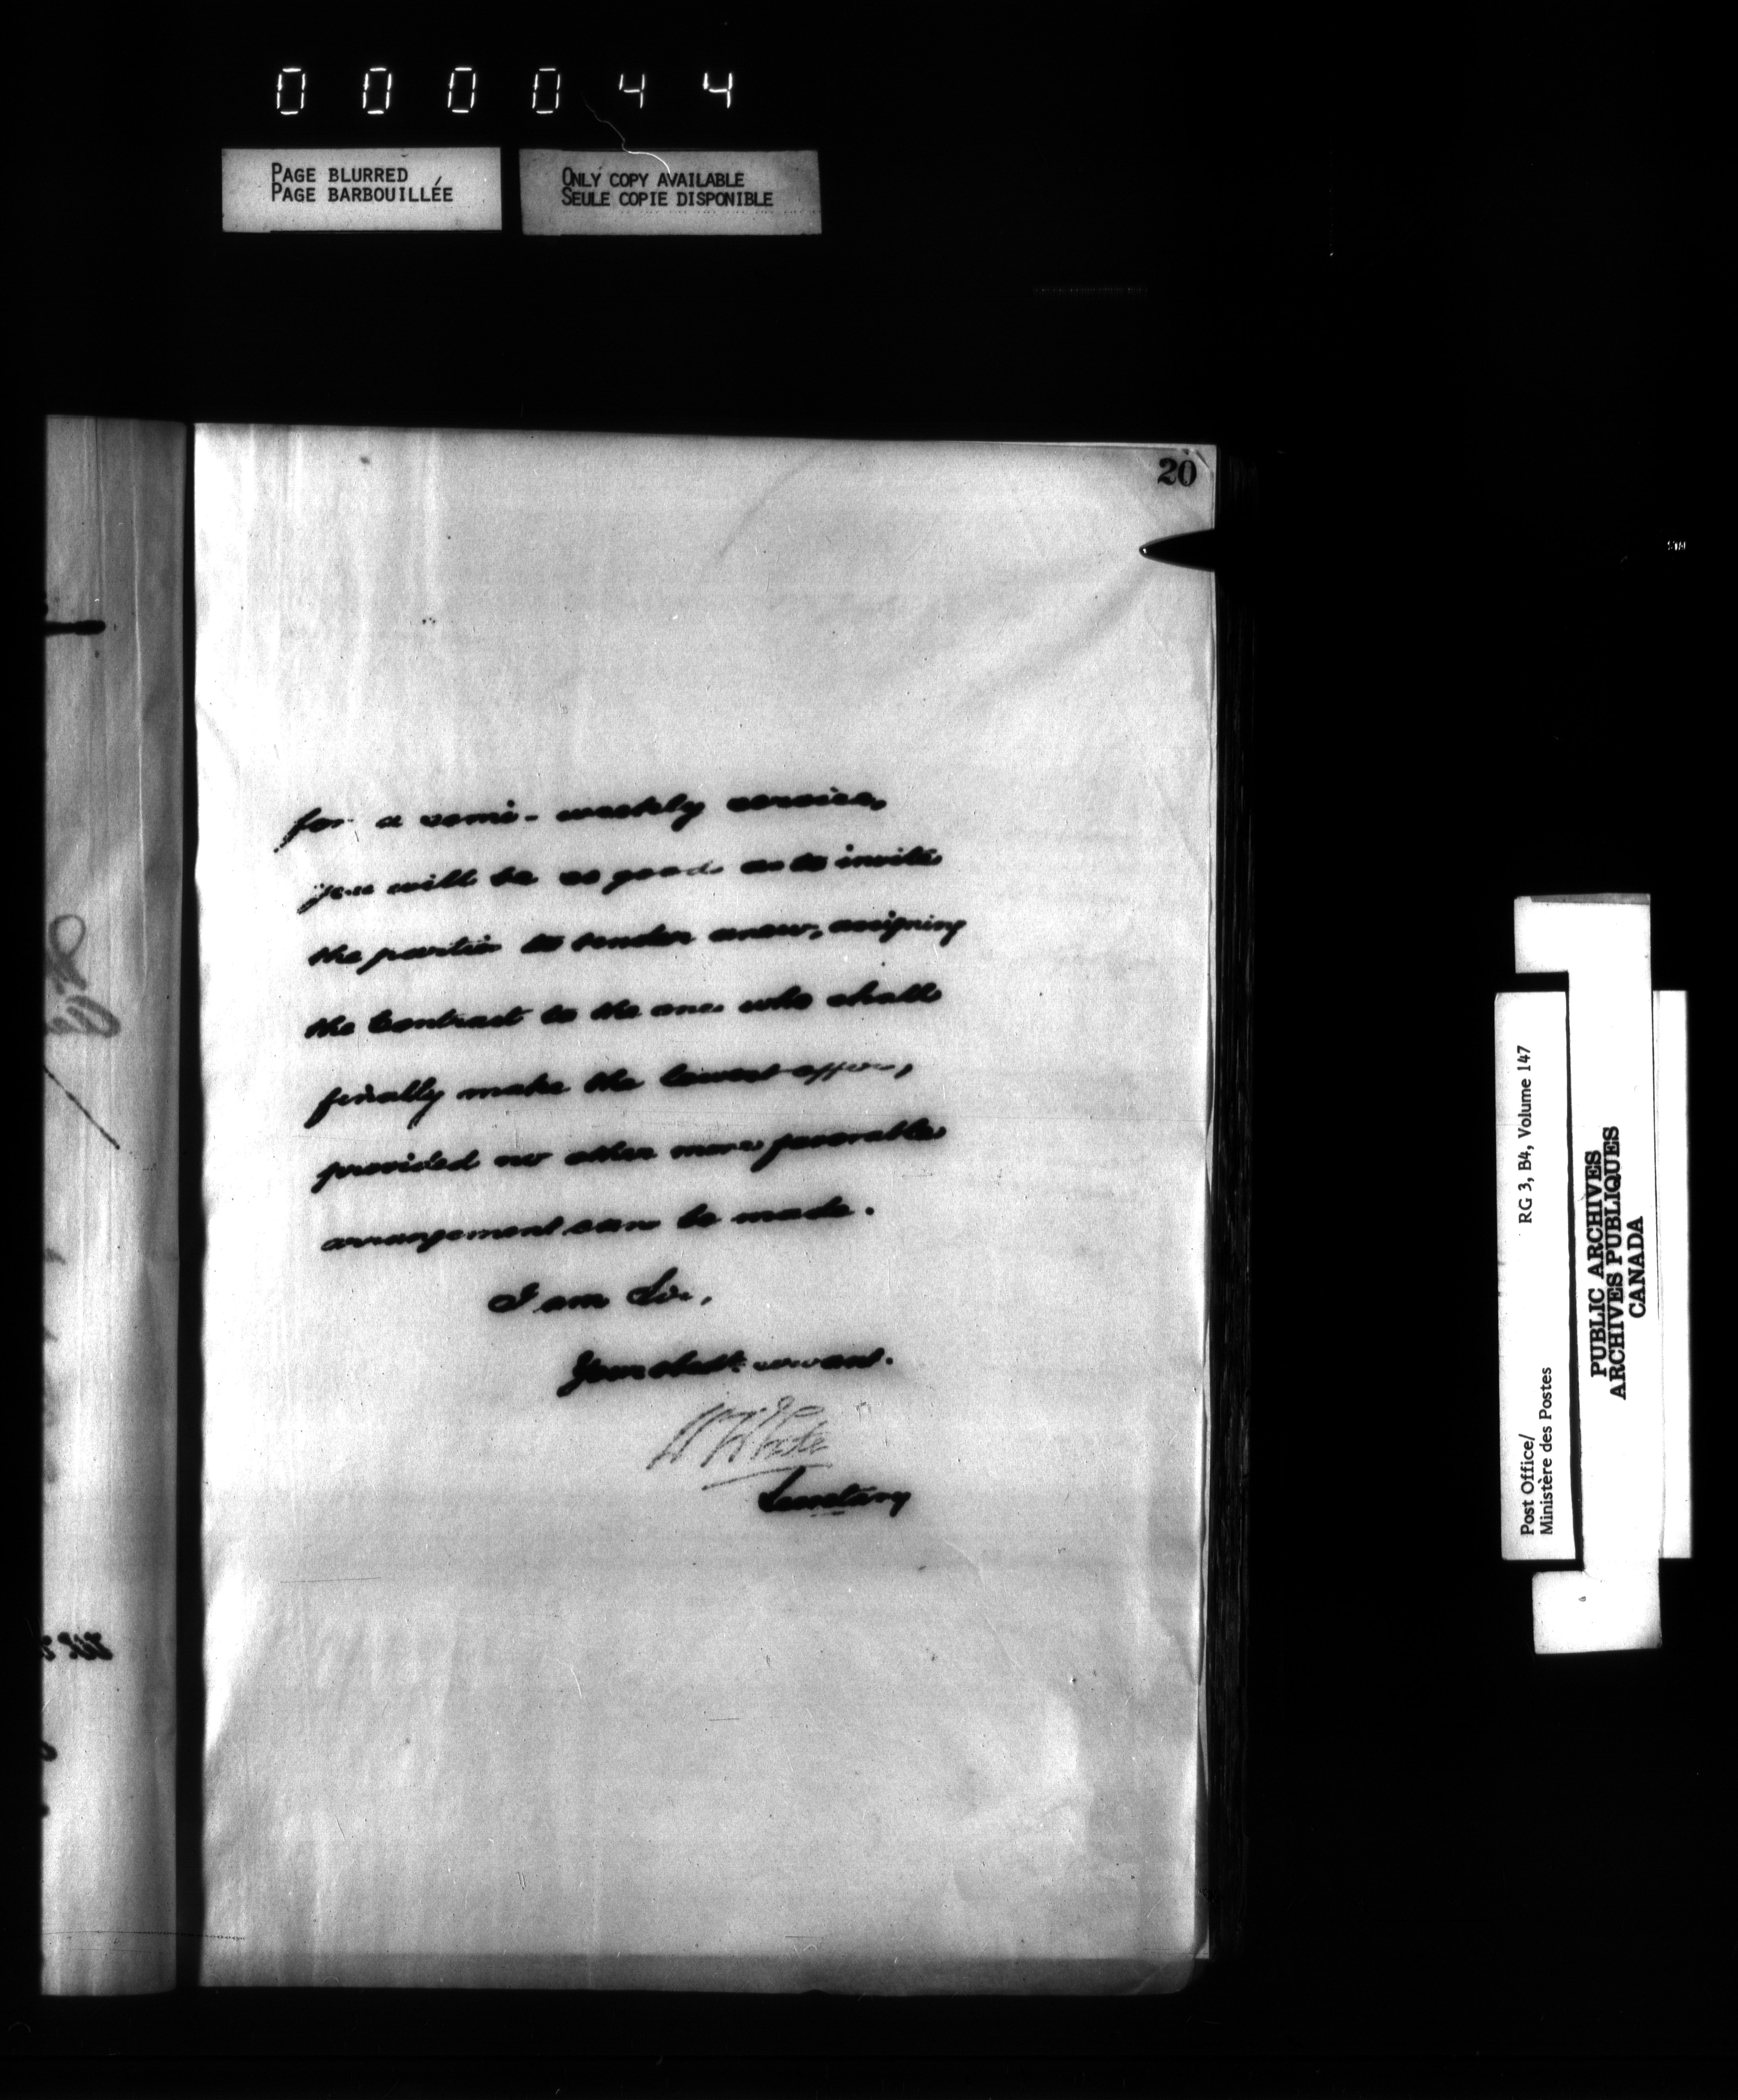 000044
PAGE BLURRED
PAGE BARBOUILLÉE
ONLY COPY AVAILABLE
SEULE COPIE DISPONIBLE
20
for a semi-weekly service,
you will be so good as to invite
the parties to tender anew, assigning
the Contract to the one who shall
finally make the lowest offer,
provided no other more favorable
arrangement can be made.
I am Sir,
Your obedt. servant.
W White
Secretary
Post Office/
Ministère des Postes
RG 3, B4, Volume 147
PUBLIC ARCHIVES
ARCHIVES PUBLIQUES
CANADA